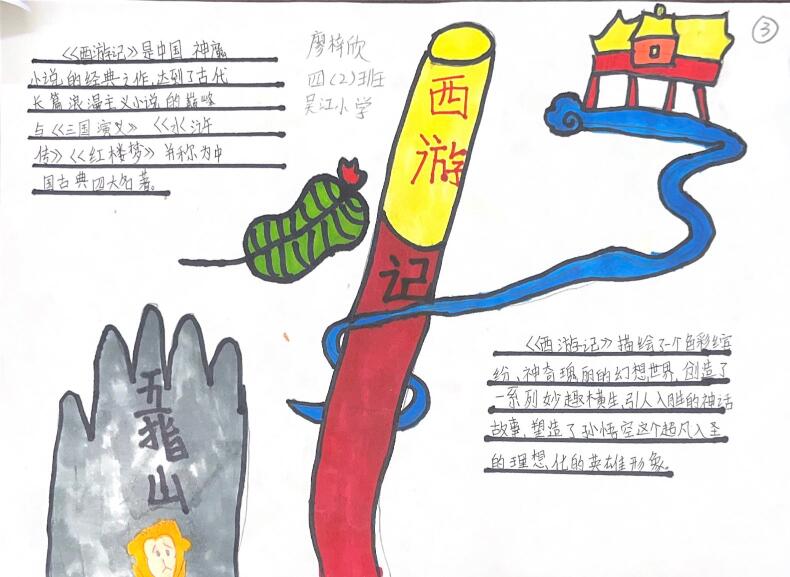 《西游记》是中国 神魔
小说的经典之作，达到了古代
长篇浪漫主义小说的巅峰
与《三国演义》《水浒
传》《红楼梦》并称为中
国古典四大名著。
廖梓欣
四（2）班
吴江小学
3
西
游
记
五
指
山
《西游记》描绘了一个色彩缤
纷、神奇瑰丽的幻想世界，创造了
一系列妙趣横生，引人入胜的神话
故事，塑造了孙悟空这个超凡入圣
的理想化的英雄形象。